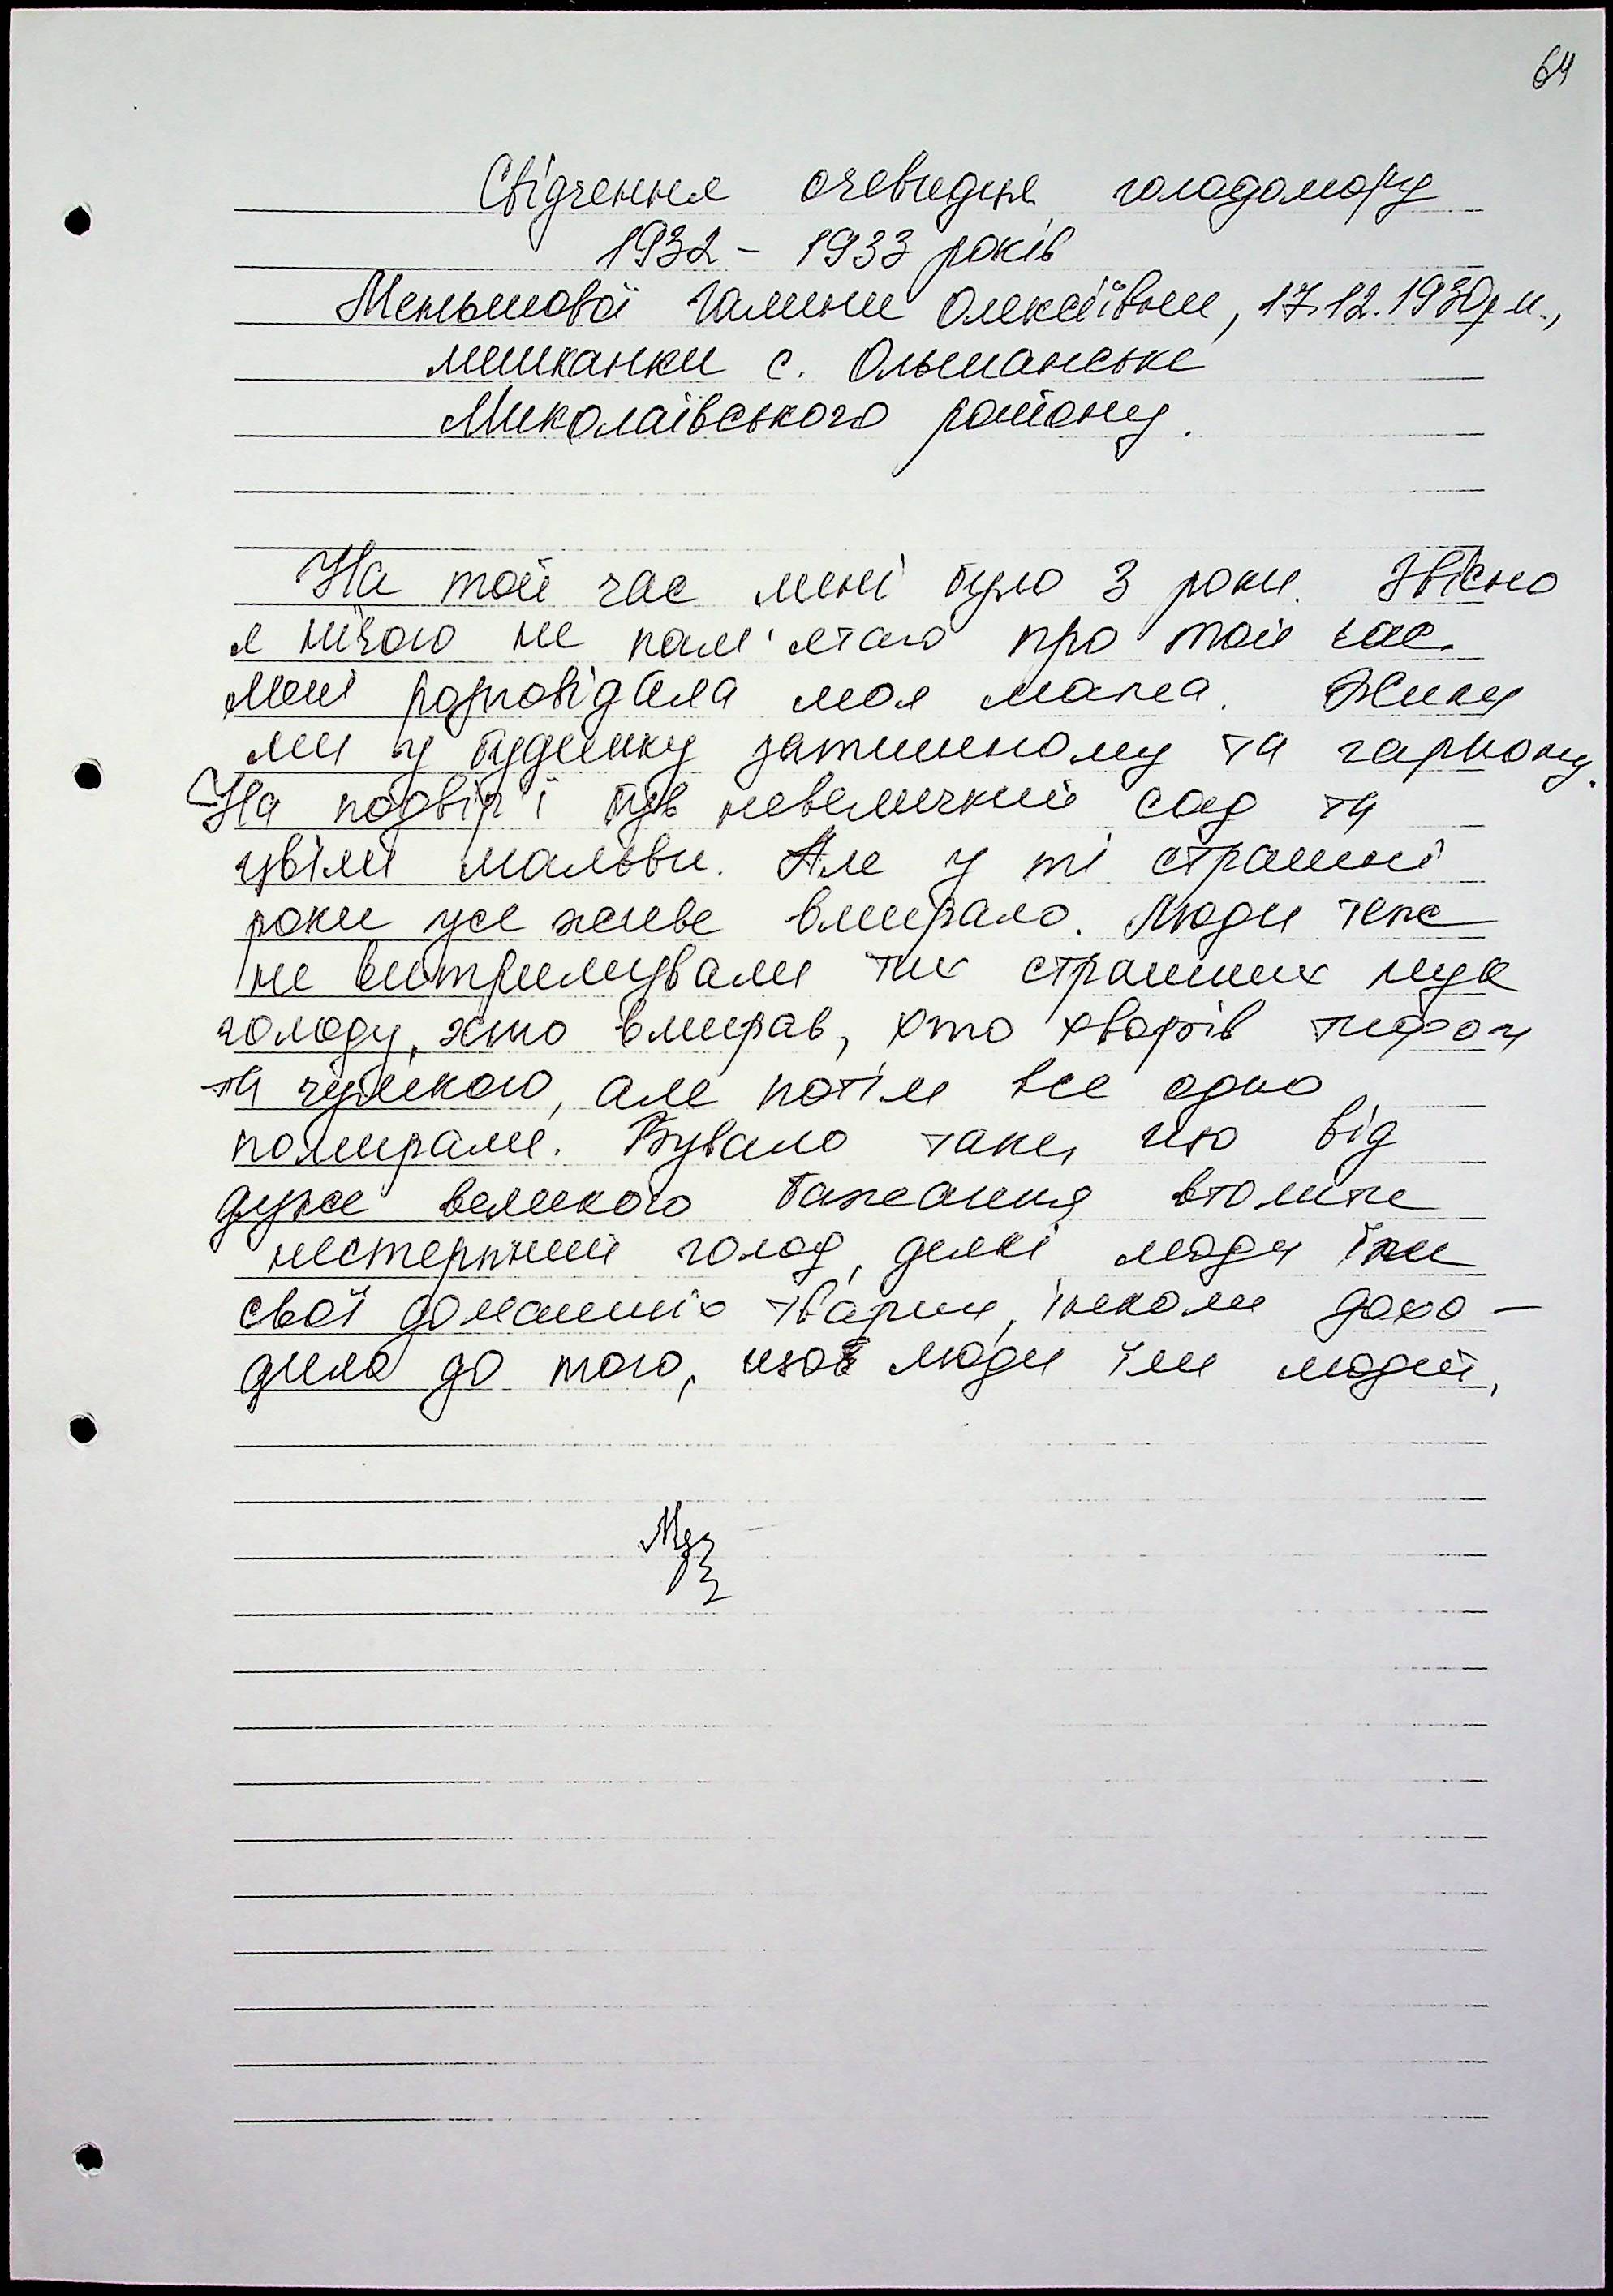 64
Свідчення очевидця голодомору
1932 - 1933 років
Меньшової Галини Олексіївни, 17.12.1930р.н.,
мешканки с. Ольшанське
Миколаївського району.
На той час мені було 3 роки. Звісно
я нічого не пам'ятаю про той час.
Мені розповідала моя мама. Жили
ми у будинку затишному та гарному.
На подвір'ї був невеличкий сад та
цвіли мальви. Але у ті страшні
роки усе живе вмирало. Люди теж
не витримували тих страшних мук
голоду, хто вмирав, хто хворів тифом
та чумкою, але потім все одно
помирали. Бувало таке, що від
дуже великого бажання втолити
нестерпний голод, деякі люди їли
свої домашніх тварин, інколи дохо-
дило до того, щоб люди їли людей.